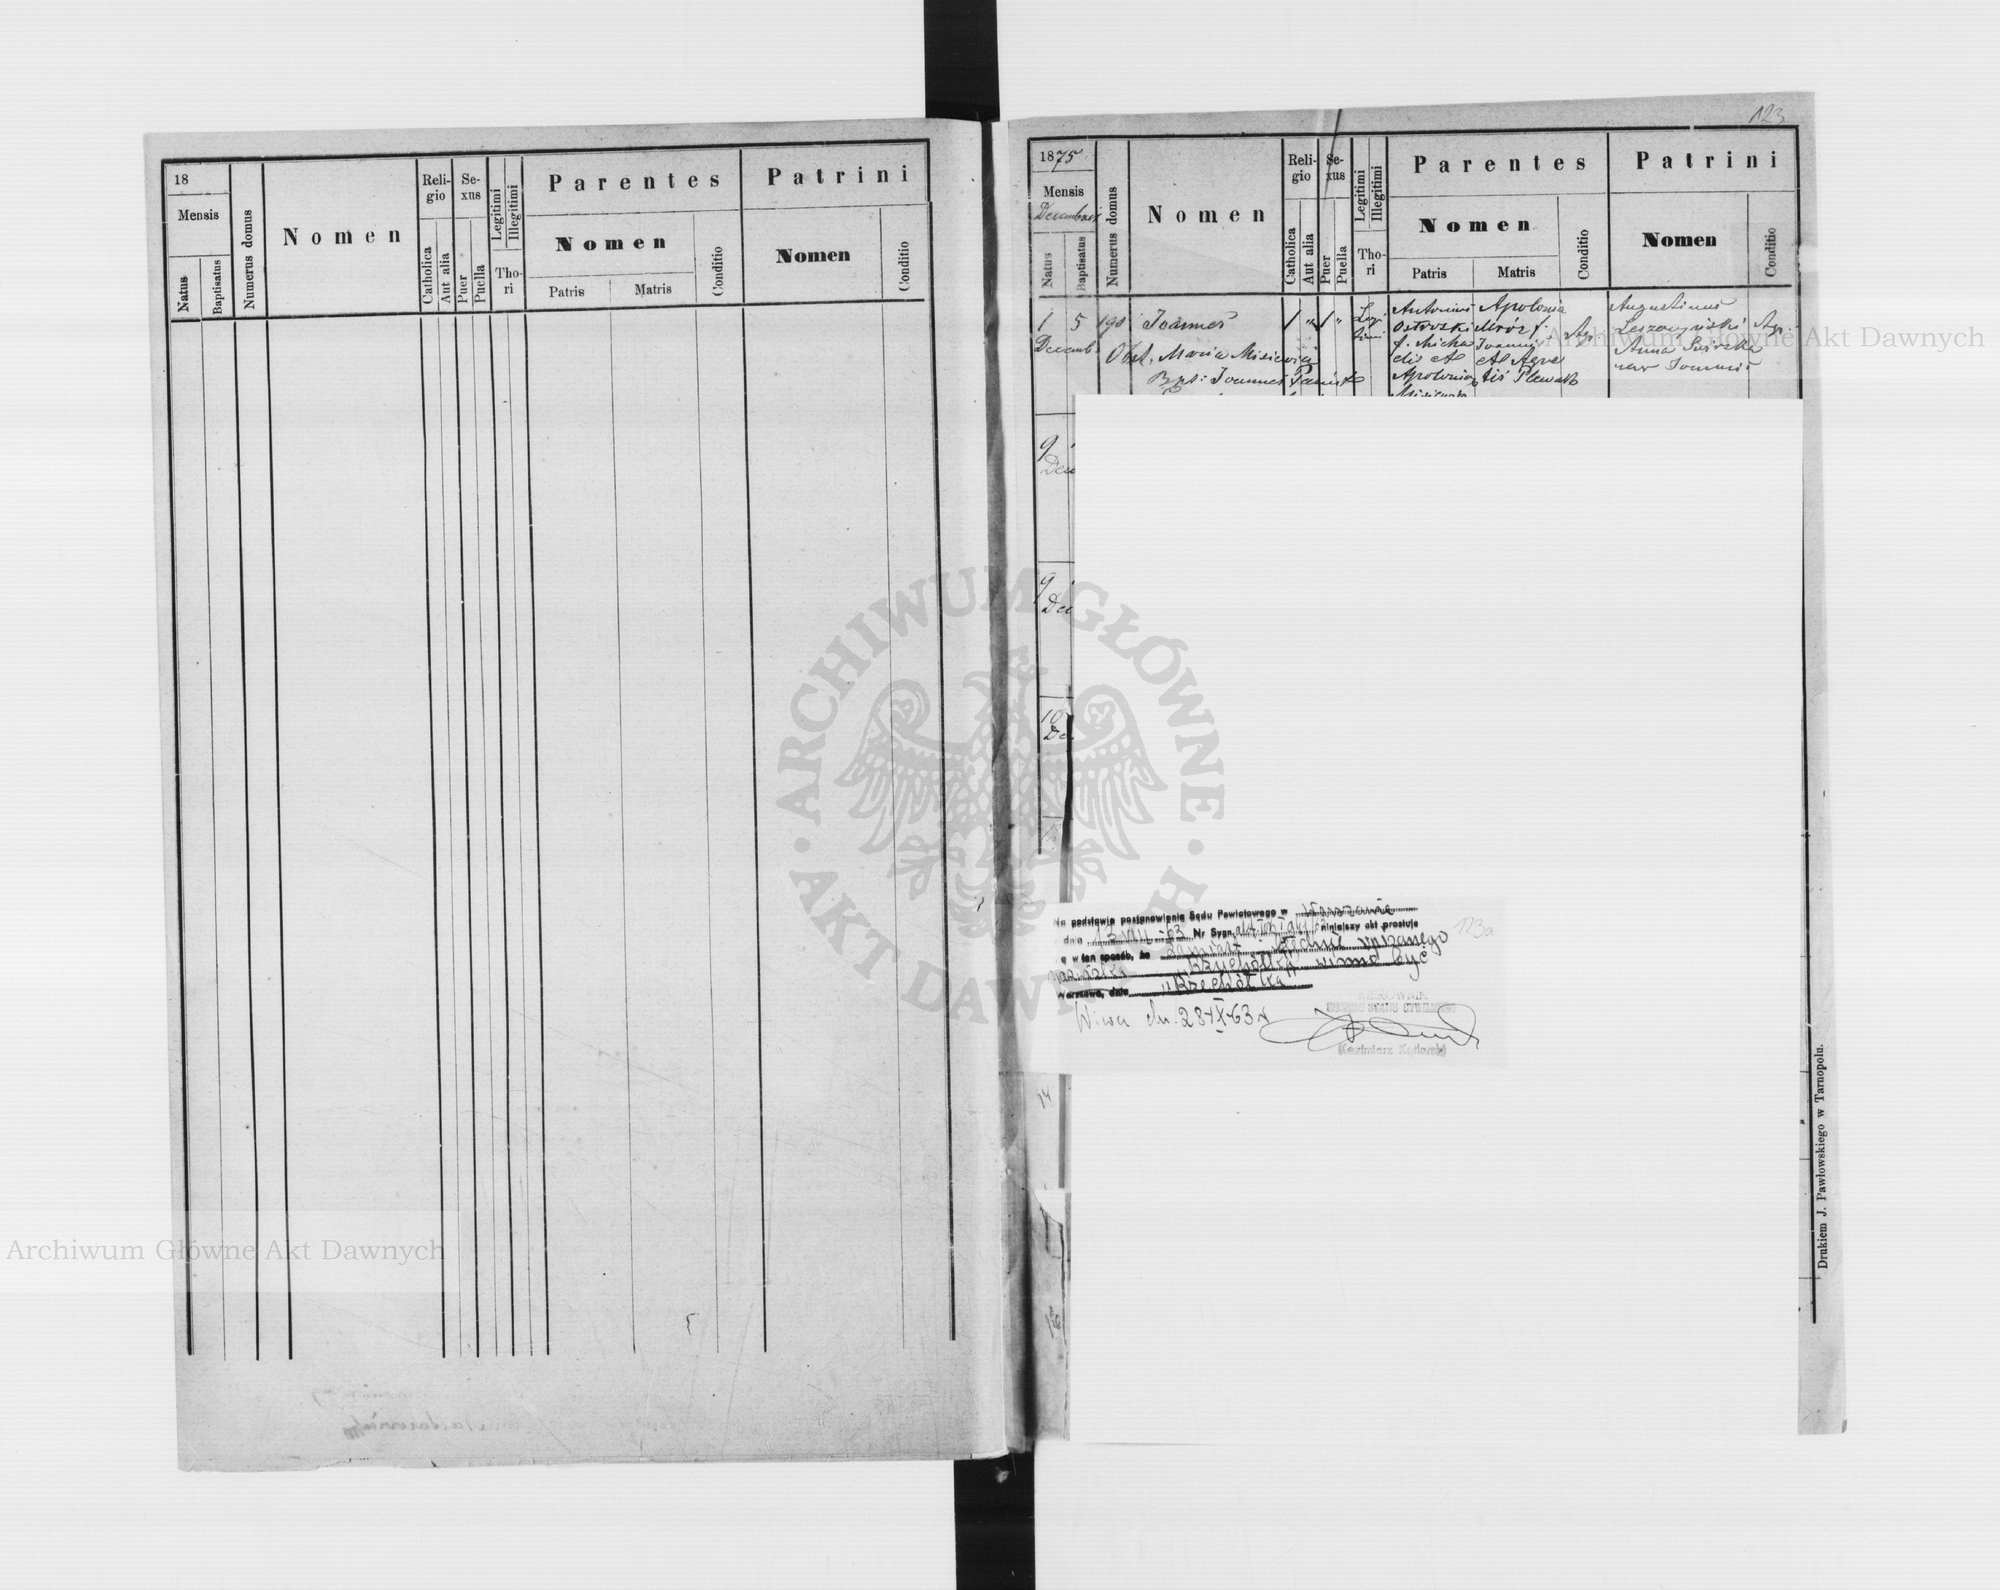 18
Mensis
Natus
Baptisatus
Numerus domus
Nomen
Religio
Catholica
Aut alia
Sexus
Puer
Puella
Legitimi
Illegitimi
Thori
Parentes
Nomen
Patris
Matris
Conditio
Patrini
Nomen
Conditio
123
1875
Mensis
Decembris
Natus
Baptisatus
Numerus domus
Nomen
Religio
Catholica
Aut alia
Sexus
Puer
Puella
Legitimi
Illegitimi
Thori
Parentes
Nomen
Patris
Matris
Conditio
Patrini
Nomen
Conditio
1 5 190 Joannes 1 " 1 " Legi- Antonius Apolonia Augustinus
Decemb. timi Ostroski Mróz f. Agr. Agr.
Obst. Maria Misiewicz f. Micha Joannis Anna
Bapt: Joannes elis et et Agne Joannis
Apolonia tis Plewak
9
Dec
9
De
10
De
14
Na podstawie postanowienia Sądu Powiatowego w Warszawie
z dnia VIII-63 Nr Sygn. niniejszy akt prostuje
się w ten sposób, że zamiast błędnie wpisanego
nazwiska winno być
Warszawa, dnia "Brzechótka"
W-wa dn. 28-IX-63 r
KIEROWNIK
URZĘDU STANU CYWILNEGO
(Kazimierz Kotlarski)
123a
Drukiem J. Pawłowskiego w Tarnopolu.
ARCHIWUM GŁÓWNE · AKT DAWNYCH ·
Archiwum Główne Akt Dawnych
Archiwum Główne Akt Dawnych